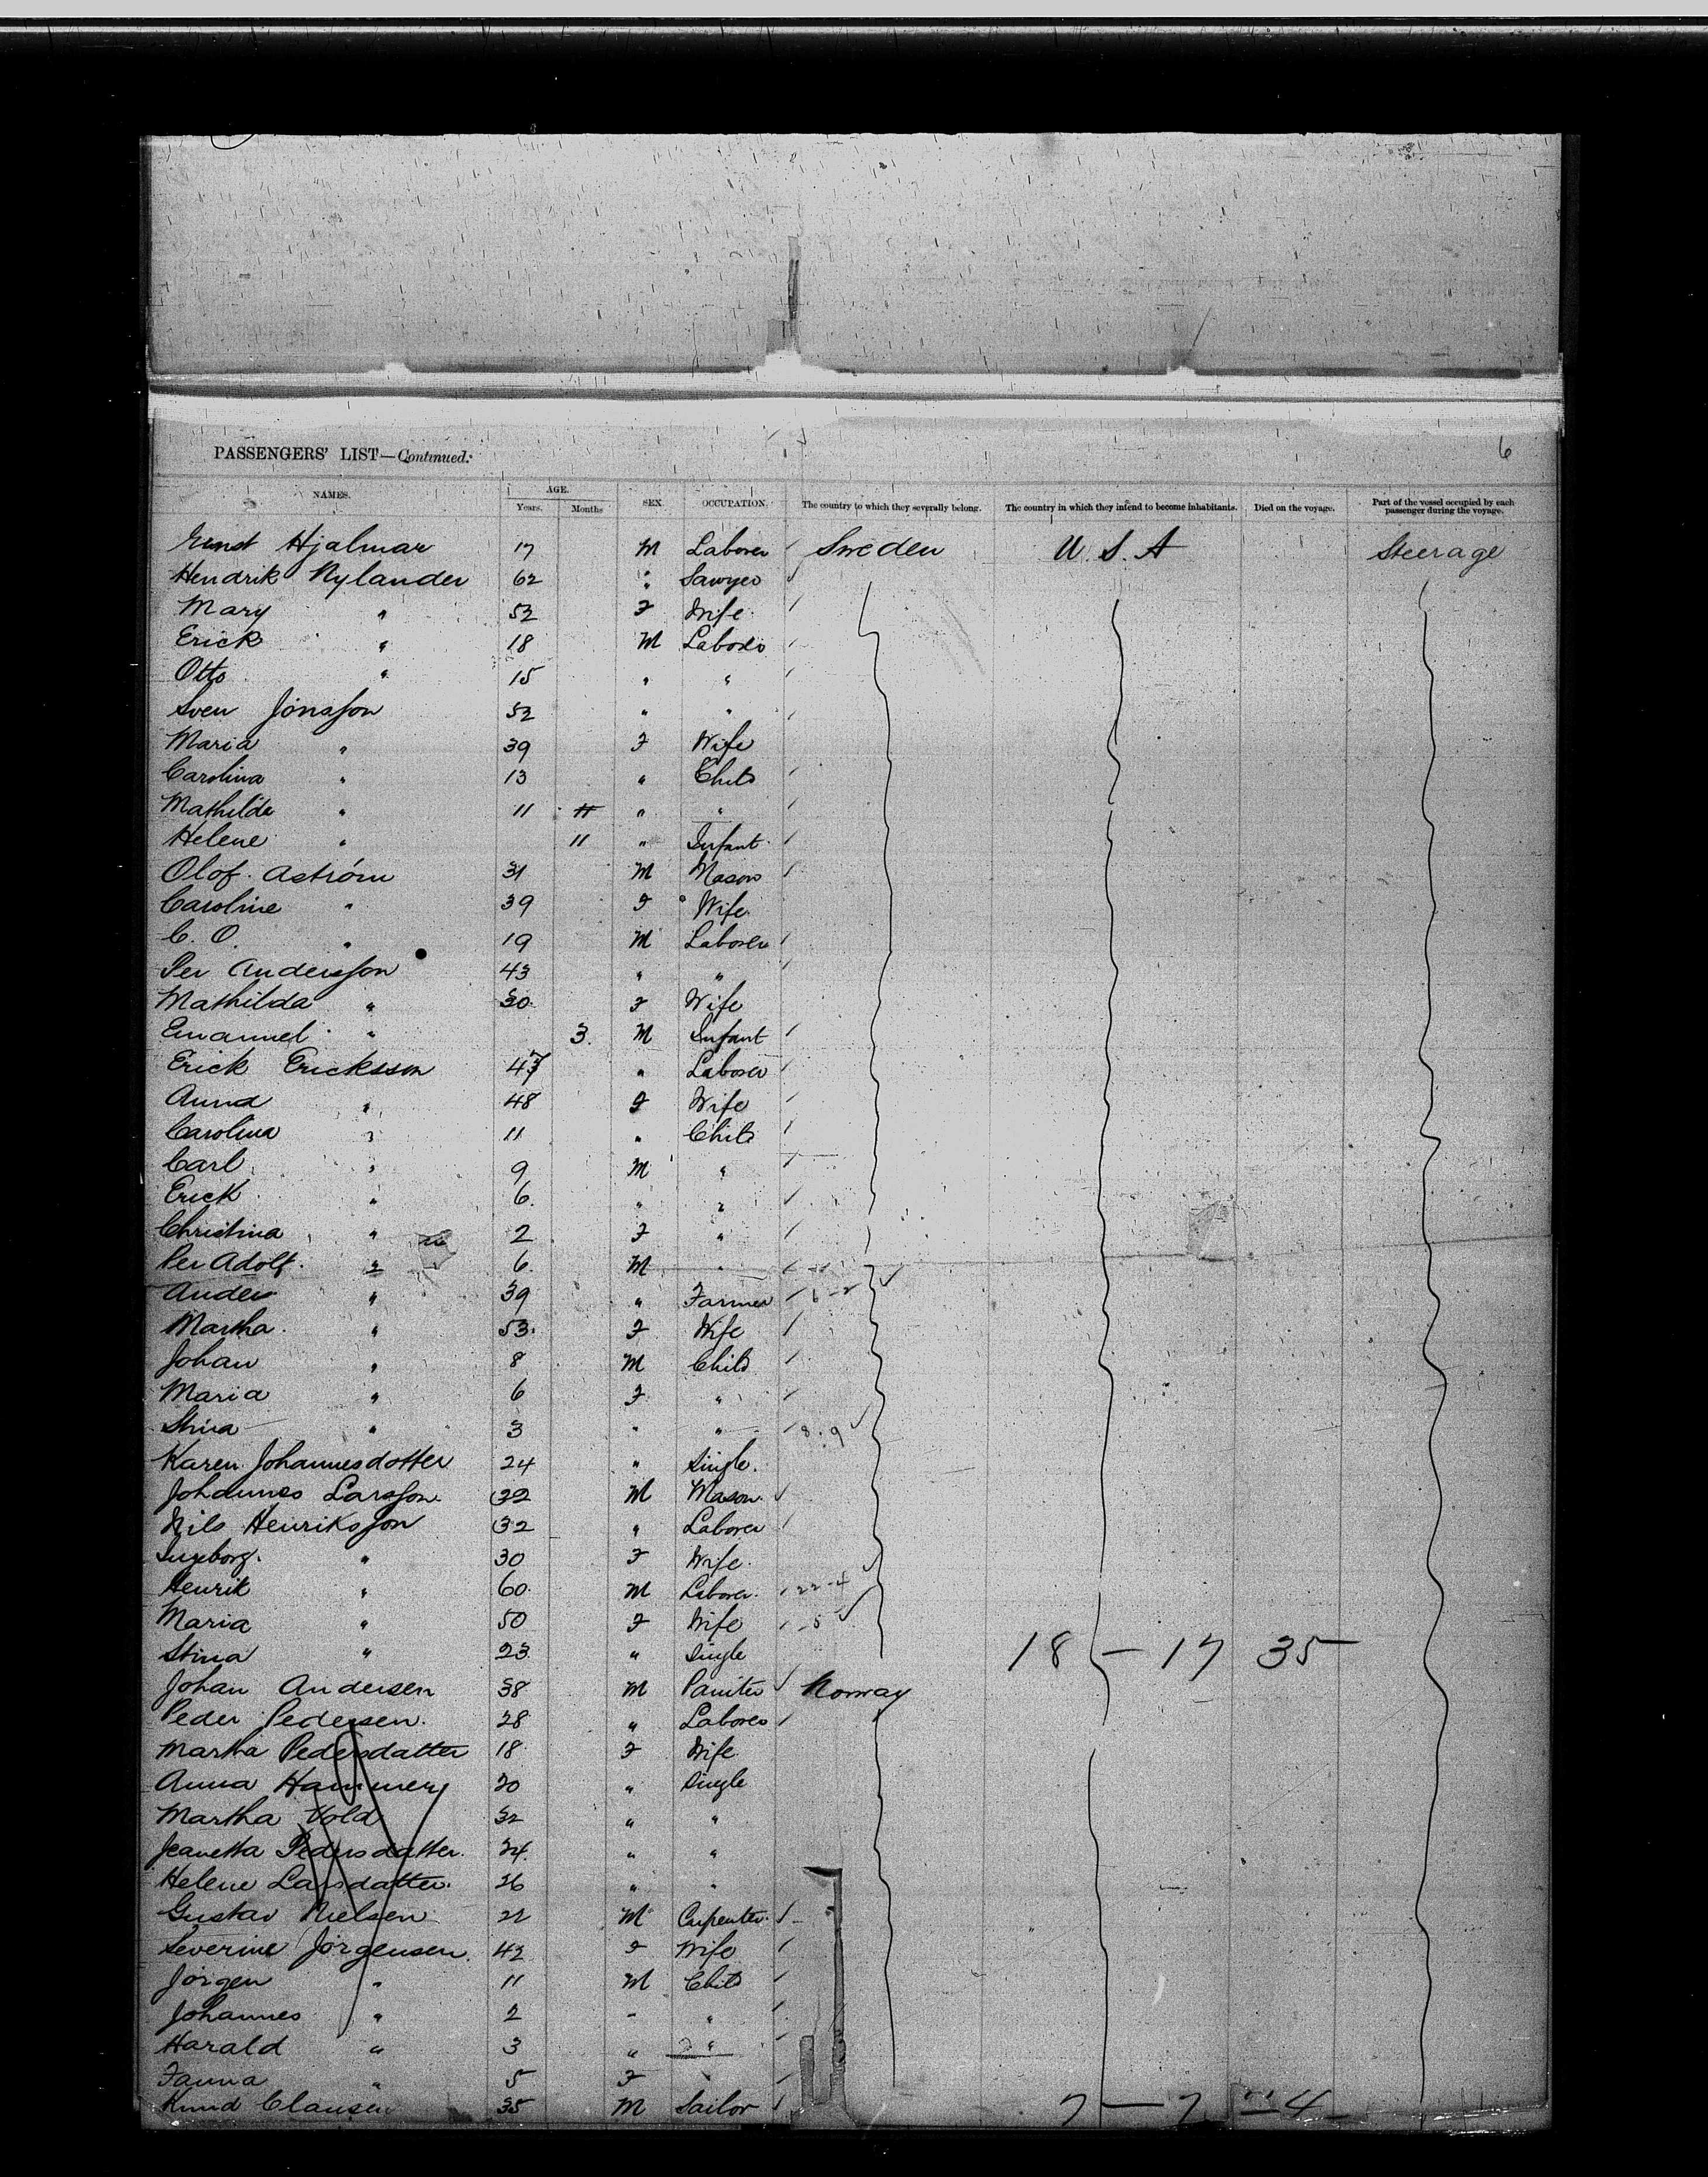 6
PASSENGERS' LIST—Continued.
NAMES. AGE. Years. Months SEX. OCCUPATION. The country to which they severally belong. The country in which they intend to become inhabitants. Died on the voyage. Part of the vessel occupied by each passenger during the voyage.
Ernst Hjalmar 17 M Laborer Sweden U.S.A Steerage
Hendrik Nylander 62 " Sawyer
Mary " 52 F Wife
Erick " 18 M Laborer
Otto " 15 " "
Sven Jonasson 52 " "
Maria " 39 F Wife
Carolina " 13 " Child
Mathilda " 11 " "
Helene " 11 " Infant
Olof Aström 31 M Mason
Caroline " 39 F Wife
C. O. " 19 M Laborer
Per Andersson 43 " "
Mathilda " 30 F Wife
Emanuel " 3 M Infant
Erick Ericksson 47 " Laborer
Anna " 48 F Wife
Carolina " 11 " Child
Carl " 9 M "
Erick " 6 " "
Christina " 2 F "
Per Adolf " 6 M "
Anders " 39 " Farmer
Martha " 53 F Wife
Johan " 8 M Child
Maria " 6 F "
Stina " 3 " " 8.9
Karen Johannesdotter 24 " Single.
Johannes Larsson 32 M Mason
Nils Henriksson 32 " Laborer
Ingeborg " 30 F Wife
Henrik " 60 M Laborer 22-4
Maria " 50 F Wife
Stina " 23 " Single 18 — 17 35
Johan Andersen 38 M Painter Norway
Peder Pedersen 28 " Laborer
Martha Pedersdatter 18 F Wife
Anna Hammery 20 " Single
Martha Vold 32 " "
Jeanetta Pedersdatter 24 " "
Helene Larsdatter 26 " "
Gustav Nielsen 22 M Carpenter
Severine Jörgensen 42 F Wife
Jörgen " 11 M Child
Johannes " 2 - "
Harald " 3 " "
Fanna " 5 F
Knud Clausen 35 M Sailor 7 — 7